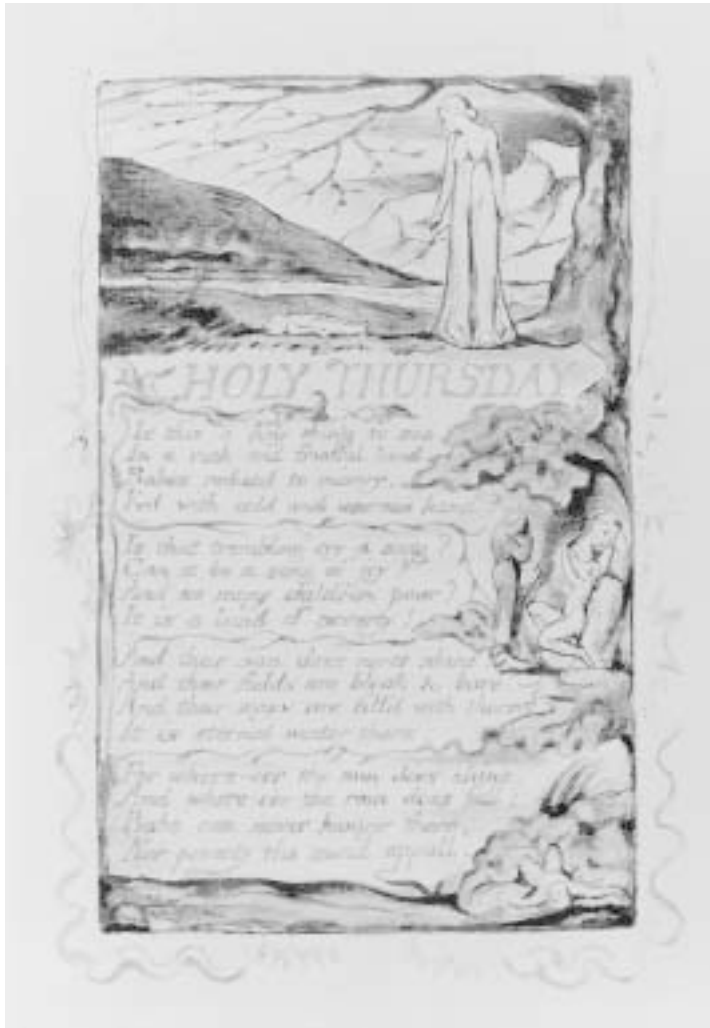 HOLY THURSDAY
Is this a holy thing to see
In a rich and fruitful land
Babes reducd to misery
Fed with cold and usurous hand
Is that trembling cry a song?
Can it be a song of joy?
And so many children poor?
It is a land of poverty!
And their sun does never shine
And their fields are bleak & bare
And their ways are fill'd with thorns
It is eternal winter there
For where-e'er the sun does shine
And where-e'er the rain does fall:
Babe can never hunger there,
Nor poverty the mind appall